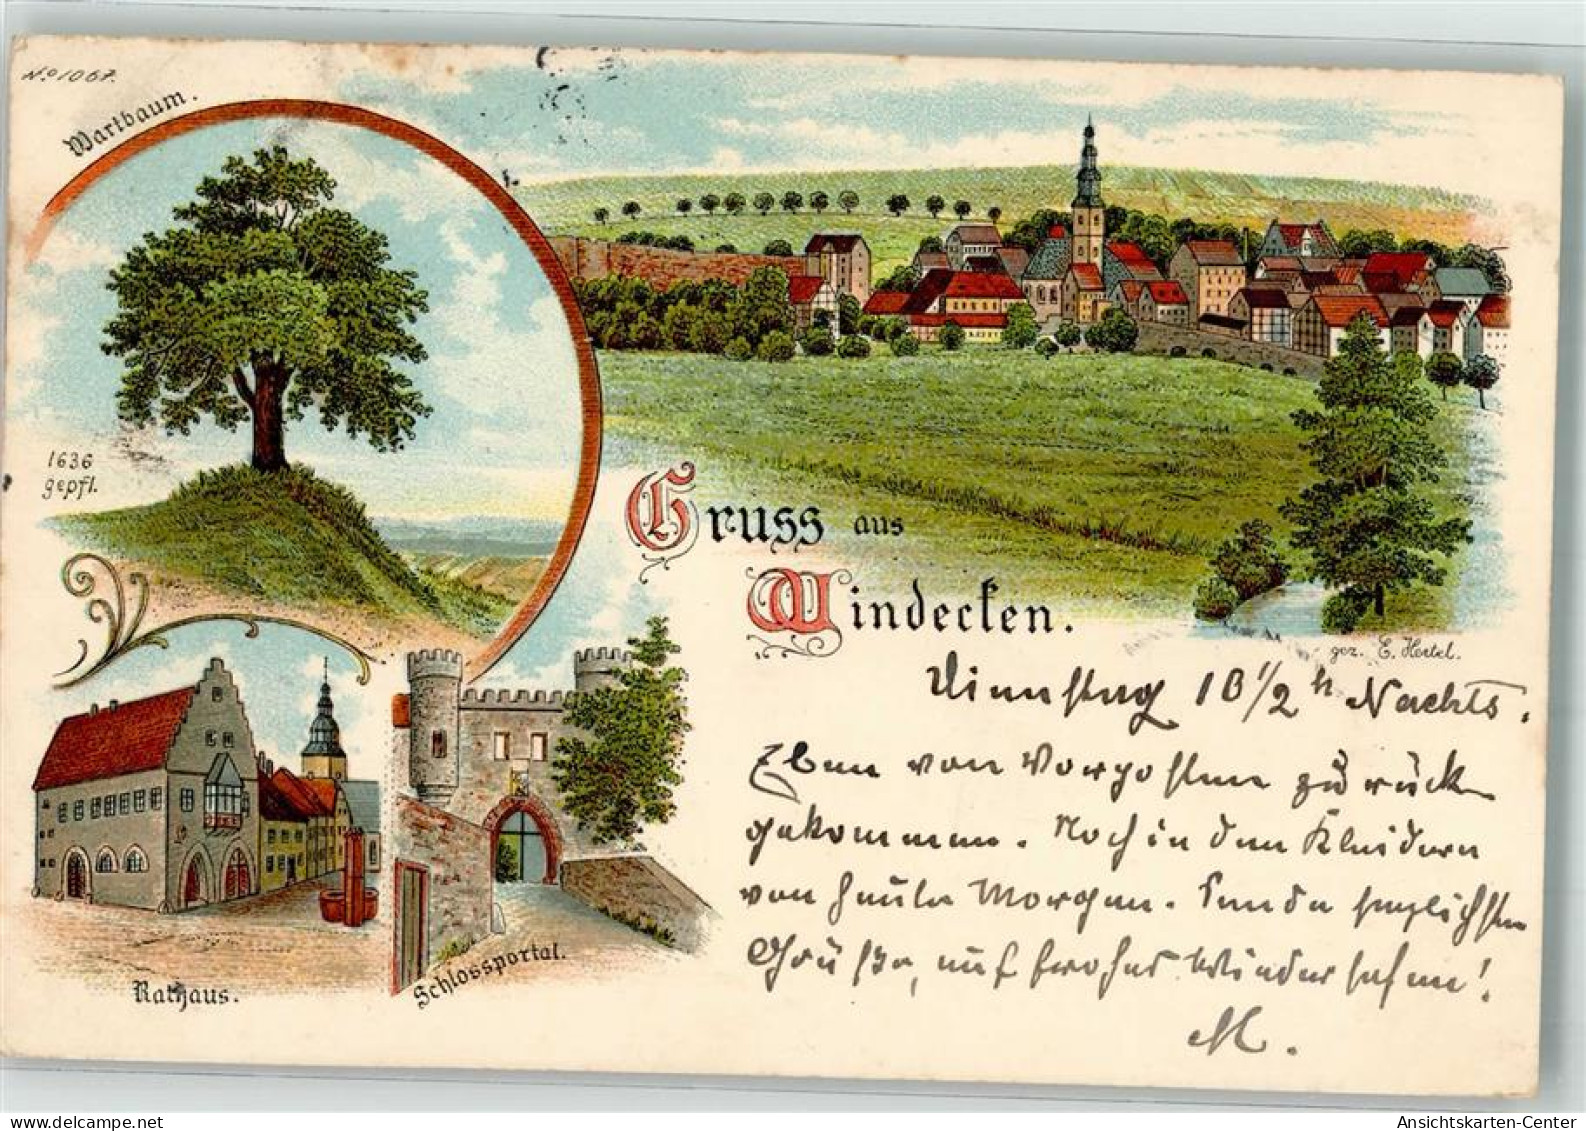 No 1067.
Wartbaum.
1636
gepfl.
Gruss aus
Windecken.
gez. E. Hertel.
Rathaus.
Schlossportal.
Dienstag 10 1/2 h Nachts.
Eben von Vorposten zurück
gekommen. Noch in den Kleidern
von heute Morgen. Sende herzlichste
Grüße, auf frohes Wiedersehen!
M.
delcampe.net
Ansichtskarten-Center